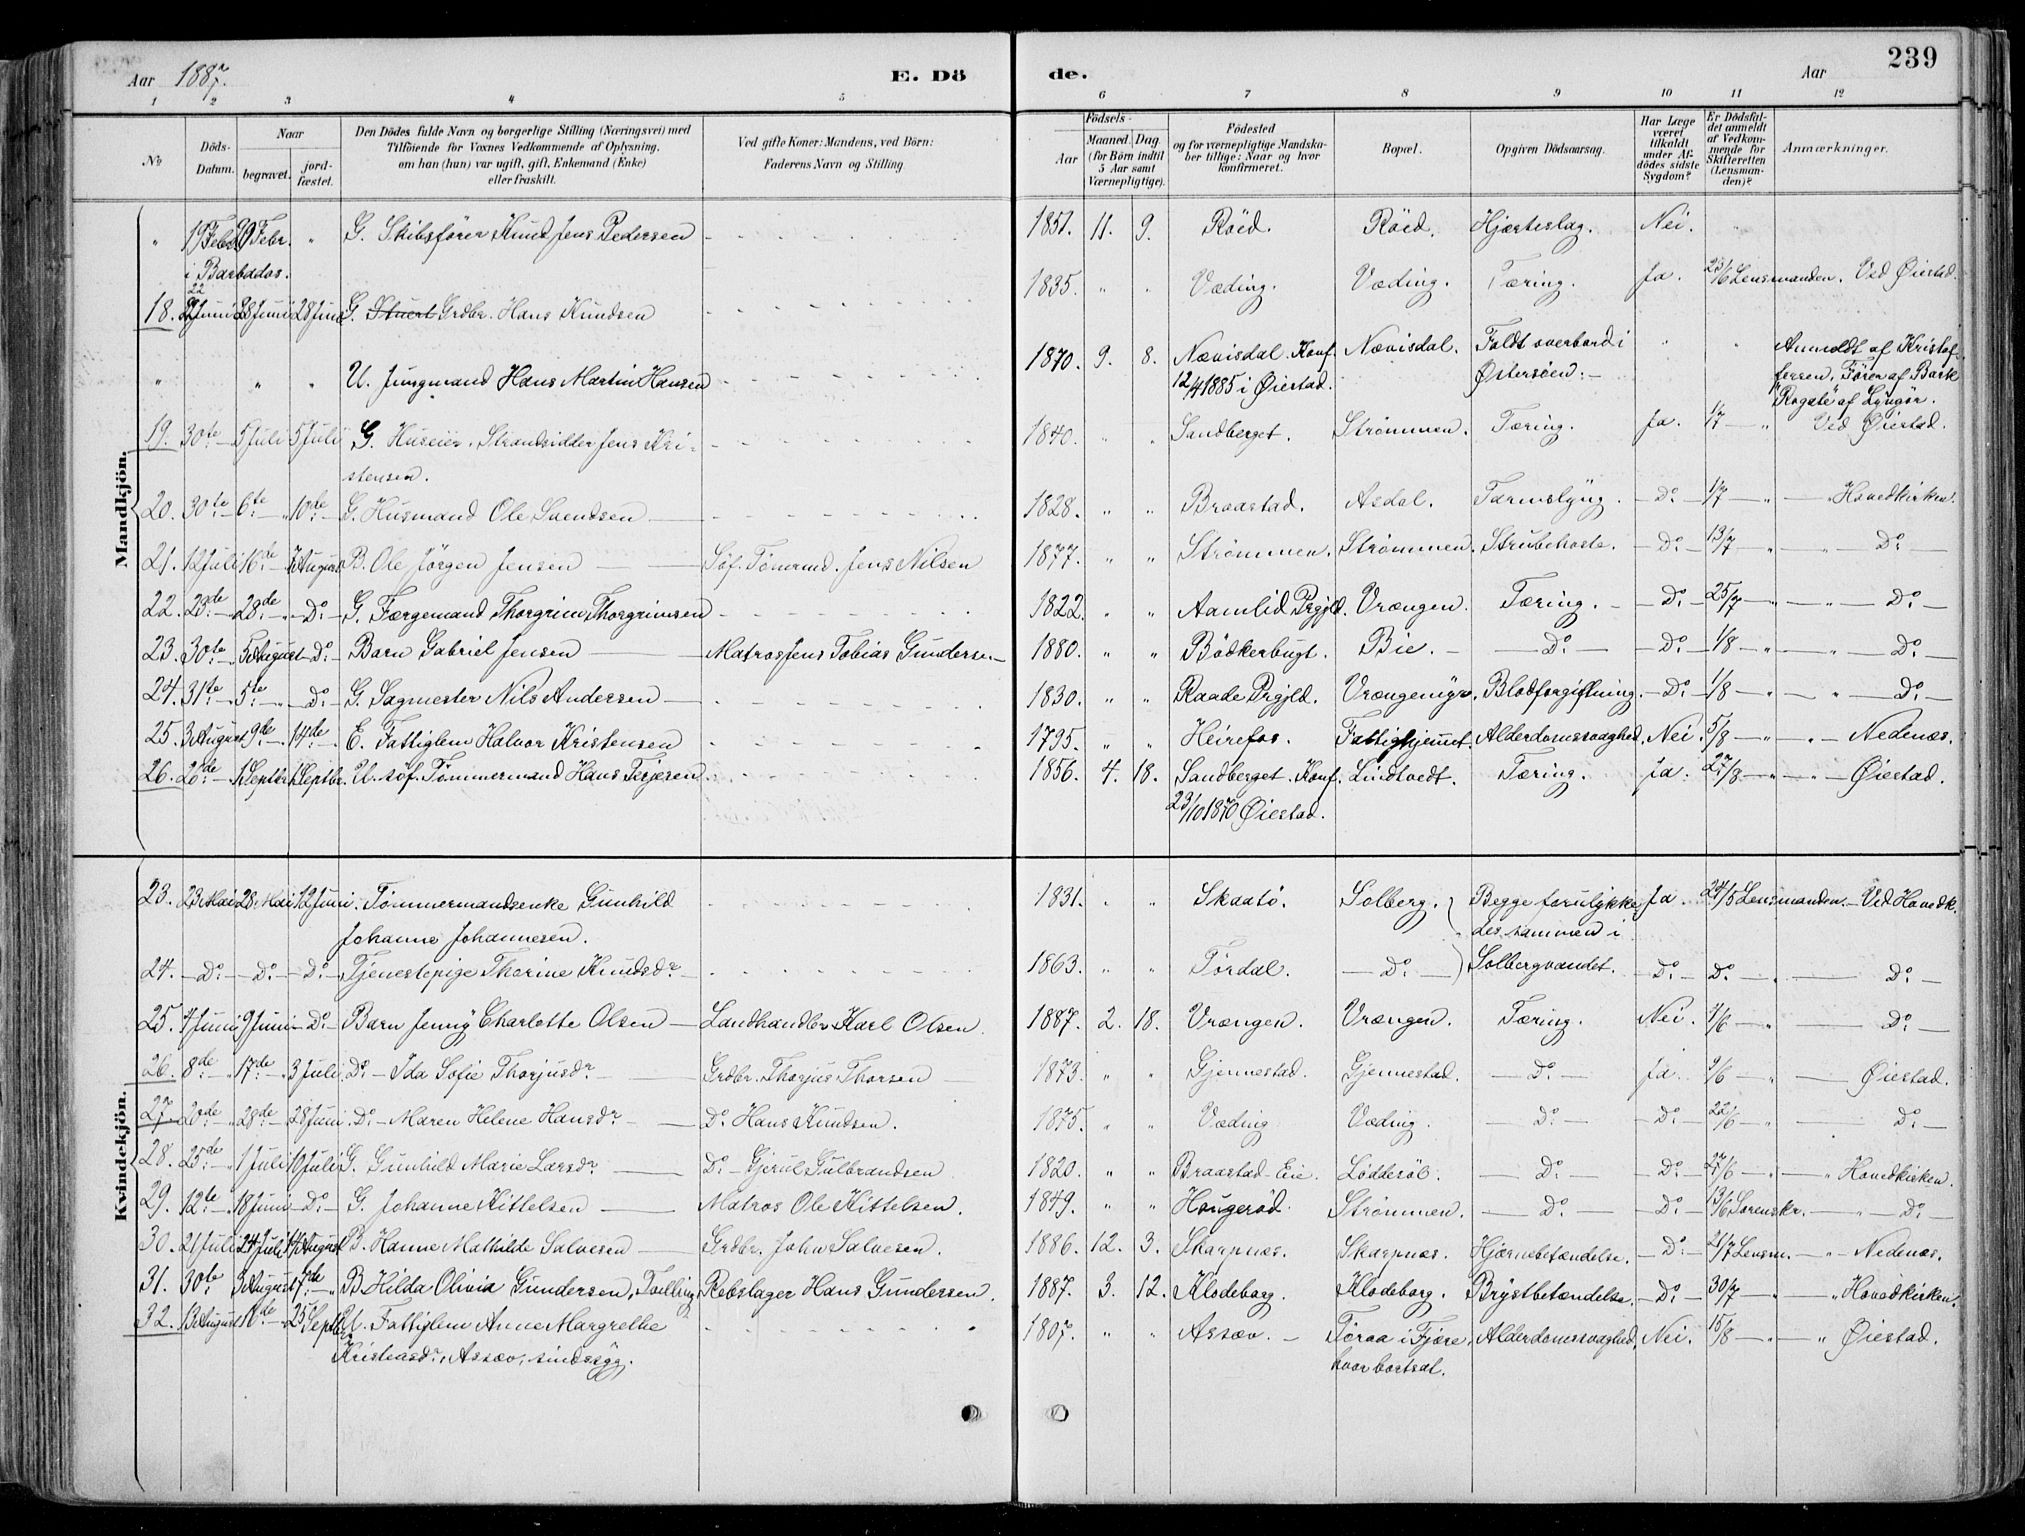 239
Aar 1887. E. Döde. Aar
1 2 3 4 5 6 7 8 9 10 11 12
No
Döds-Datum.
Naar begravet. jordfæstet.
Den Dödes fulde Navn og borgerlige Stilling (Næringsvei) med
Tilföiende for Voxnes Vedkommende af Oplysning.
om han (hun) var ugift, gift, Enkemand (Enke)
eller fraskilt.
Ved gifte Koner: Mandens, ved Börn:
Faderens Navn og Stilling.
Födsels-
Aar Maaned. Dag.
(for Börn indtil 5 Aar samt Værnepligtige).
Födested
og for værnepligtige Mandskaber tillige: Naar og hvor konfirmeret.
Bopæl.
Opgiven Dödsaarsag.
Har Læge været tilkaldt under Afdödes sidste Sygdom?
Er Dödsfaldet anmeldt af Vedkommende for Skifteretten (Lensmanden)?
Anmærkninger.
Mandkjön.
" 19 Febr. " G. Skibsfører Knud Jens Pedersen 1851. 11. 9. Røed. Røed. Hjerteslag. Nei. "
i Barbados.
18. 22 Juni 28 Juni 28 Juni G. Grdbr. Hans Knudsen 1835. " " Væding. Væding. Tæring. Ja. 23/6 Lensmanden. Ved Øiestad.
" " " U. Jungmand Hans Martin Hansen 1870. 9. 8. Nævisdal. Konf. Nævisdal. Faldt overbord i " " Anmeldt af Kristof-
12/4 1885 i Øiestad. Østersøen. fersen, Fører af Bark
"Rogate" af Lyngør.
19. 30te 5 Juli 5 Juli G. Huseier, Strandsidder Jens Kri- 1840. " " Sandberget. Strømmen. Tæring. Ja. 1/7 " Ved Øiestad.
stensen.
20. 30te 6te " 10de G. Husmand Ole Svendsen 1828. " " Braastad. Asdal. Tarmslyng. Do 1/7 " " Hovedkirken.
21. 12 Juli 16de 7 August B. Ole Jørgen Jensen Søf. Tømrmd. Jens Nilsen 1877. " " Strømmen. Strømmen. Strubehoste. Do 13/7 " " Do
22. 23de 28de " Do G. Færgemand Thorgrim Thorgrimsen 1822. " " Aamlid Prgjld. Vrængen. Tæring. Do 25/7 " " Do
23. 30te 5 August Do Barn Gabriel Jensen Matros Jens Tobias Gundersen 1880. " " Bødkerbugt. Bie. Do Do 1/8 " " Do
24. 31te 5te " Do G. Sagmester Nils Andersen 1830. " " Raade Prgjld. Vrængenmyr. Blodforgiftning. Do 1/8 " " Do
25. 3 August 9de 14de E. Fattiglem Halvor Kristensen 1795. " " Heirefos. Fattighjemmet. Alderdomssvaghed. Nei. 5/8 " " Nedenæs.
26. 26de 1 Septbr. 1 Septbr. U. søf. Tømmermand Hans Terjesen 1856. 4. 18. Sandberget. Konf. Lindtvedt. Tæring. Ja. 27/8 " " Øiestad.
23/10 1870 Øiestad.
Kvindekjön.
23. 23 Mai 28. Mai 12 Juni. Tømmermandsenke Gunhild 1831. " " Skaatø. Solberg. Begge forulykke- Ja. 24/5 Lensmanden. Ved Hovedk.
Johanne Johannesen. des sammen i
24. Do Do Do Tjenestepige Thorine Knudsdr 1863. " " Tørdal. Do Solbergvandet. Do Do " Do
25. 4 Juni 9 Juni Do Barn Jenny Charlotte Olsen Landhandler Karl Olsen. 1887. 2. 18. Vrængen. Vrængen. Tæring. Nei. 4/6 " Do
26. 8de " 17de " 3 Juli Do Ida Sofie Thorjusdr Grdbr. Thorjus Thorsen 1873. " " Gjennestad. Gjennestad. Do Ja. 9/6 " Øiestad.
27. 20de " 28de 28 Juni. Do Maren Helene Hansdr Do Hans Knudsen. 1875. " " Væding Væding. Do Do 22/6 " Do
28. 25de " 1 Juli 10 Juli G. Gunhild Marie Larsdr Do Gjerul Gulbrandsen 1820. " " Braastad-Eie Løddesøl. Do Do 27/6 " Hovedkirken.
29. 12te 18 Juni Do G. Johanne Kittelsen Matros Ole Kittelsen. 1849. " " Haugerød. Strømmen. Do Do 13/6 Sorenskr. " Do
30. 21 Juli 24 Juli 14 August B. Hanne Mathilde Salvesen Grdbr. John Salvesen. 1886. 12. 3. Skarpnæs. Skarpnæs. Hjernebetændelse. Do 21/7 Lensm. " Nedenæs.
31. 30te 3 August B. Hilda Olivia Gundersen, Tvilling Rebslager Hans Gundersen. 1887. 3. 12. Klodeborg. Klodeborg. Brystbetændelse. Do 30/7 " " Hovedkirken.
32. 13 August 25 Septbr U. Fattiglem Anne Margrethe 1807. " " Assæv. Tøraa i Fjære, Alderdomssvaghed, Nei. 15/8 " " Øiestad.
Kristensdr, Assæv, sindssyg. hvor bortsat.